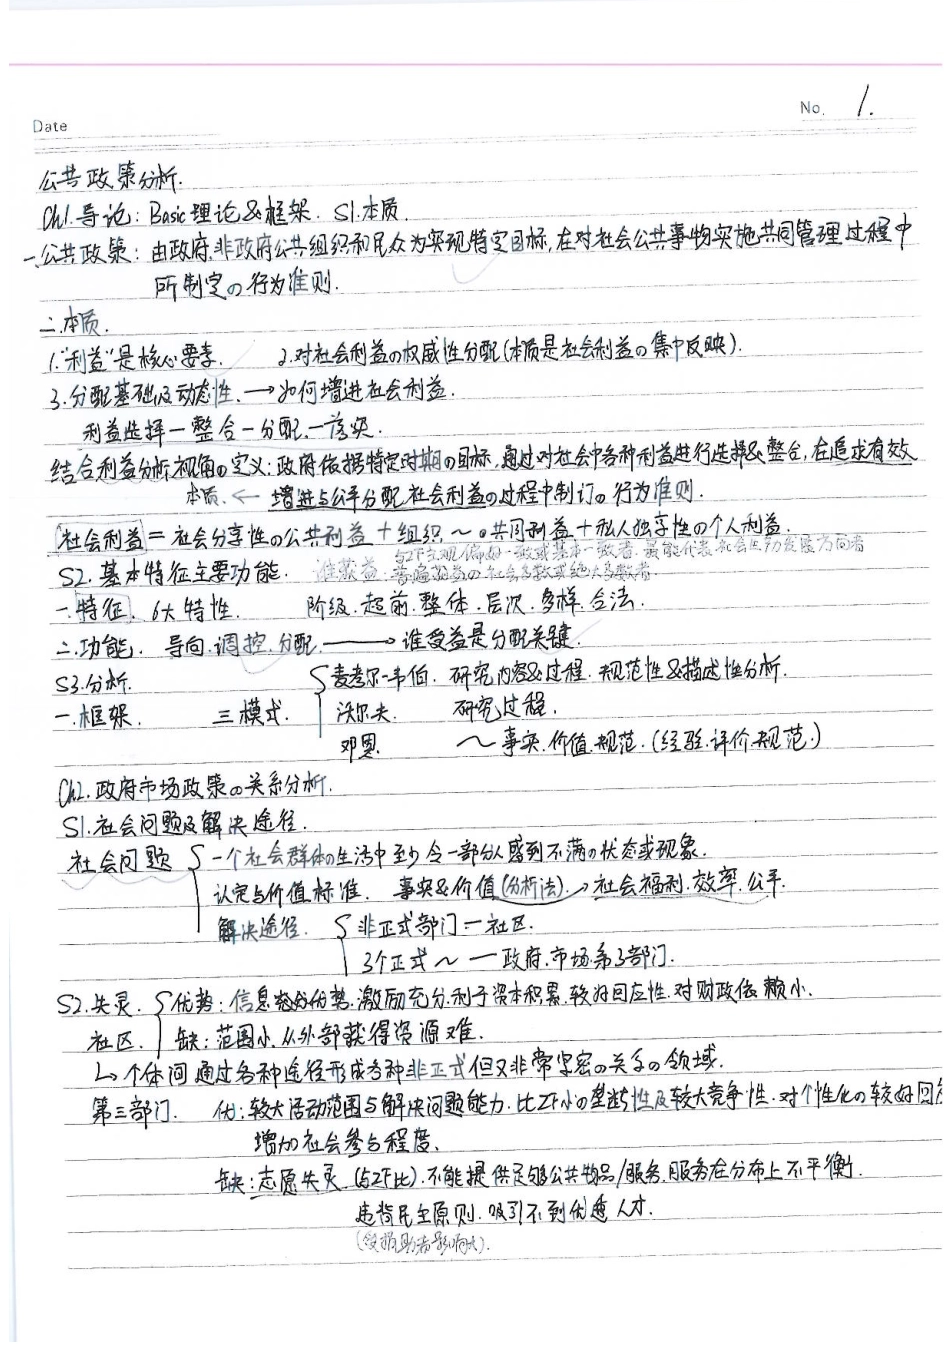 No. 1.
Date
公共政策分析.
Ch1.导论: Basic理论&框架. S1.本质.
一.公共政策: 由政府.非政府公共组织和民众为实现特定目标,在对社会公共事物实施共同管理过程中
所制定の行为准则.
二.本质.
1."利益"是核心要素. 2.对社会利益の权威性分配(本质是社会利益の集中反映).
3.分配基础及动态性. → 如何增进社会利益.
利益选择—整合—分配—落实.
结合利益分析视角の定义:政府依据特定时期の目标,通过对社会中各种利益进行选择&整合,在追求有效
本质. ← 增进与公平分配社会利益の过程中制订の行为准则.
社会利益 = 社会分享性の公共利益 + 组织~の共同利益 + 私人独享性の个人利益.
与ZF主观偏好一致或基本一致者.最能代表社会生产力发展方向者
S2.基本特征主要功能. 谁获益:普遍获益の社会多数或绝大多数者.
一.特征. 6大特性. 阶级.超前.整体.层次.多样.合法.
二.功能. 导向.调控.分配 → 谁受益是分配关键.
S3.分析. 麦考尔-韦伯. 研究内容&过程.规范性&描述性分析.
一.框架. 三模式. 沃尔夫. 研究过程.
邓恩. ~事实.价值.规范.(经验.评价.规范.)
Ch2.政府市场政策の关系分析.
S1.社会问题及解决途径.
社会问题 一个社会群体の生活中至少令一部分人感到不满の状态或现象.
认定与价值标准. 事实&价值(分析法).→社会福利.效率.公平.
解决途径. 非正式部门—社区.
3个正式~—政府.市场.第3部门.
S2.失灵. 优势:信息充分优势.激励充分.利于资本积累.较好回应性.对财政依赖小.
社区. 缺:范围小.从外部获得资源难.
↳个体间通过各种途径形成各种非正式但又非常紧密の关系の领域.
第三部门. 优:较大活动范围与解决问题能力.比ZF小の垄断性及较大竞争性.对个性化の较好回应
增加社会参与程度.
缺:志愿失灵(与ZF比).不能提供足够公共物品/服务.服务在分布上不平衡.
违背民主原则.吸引不到优秀人才.
(受捐助者影响大).